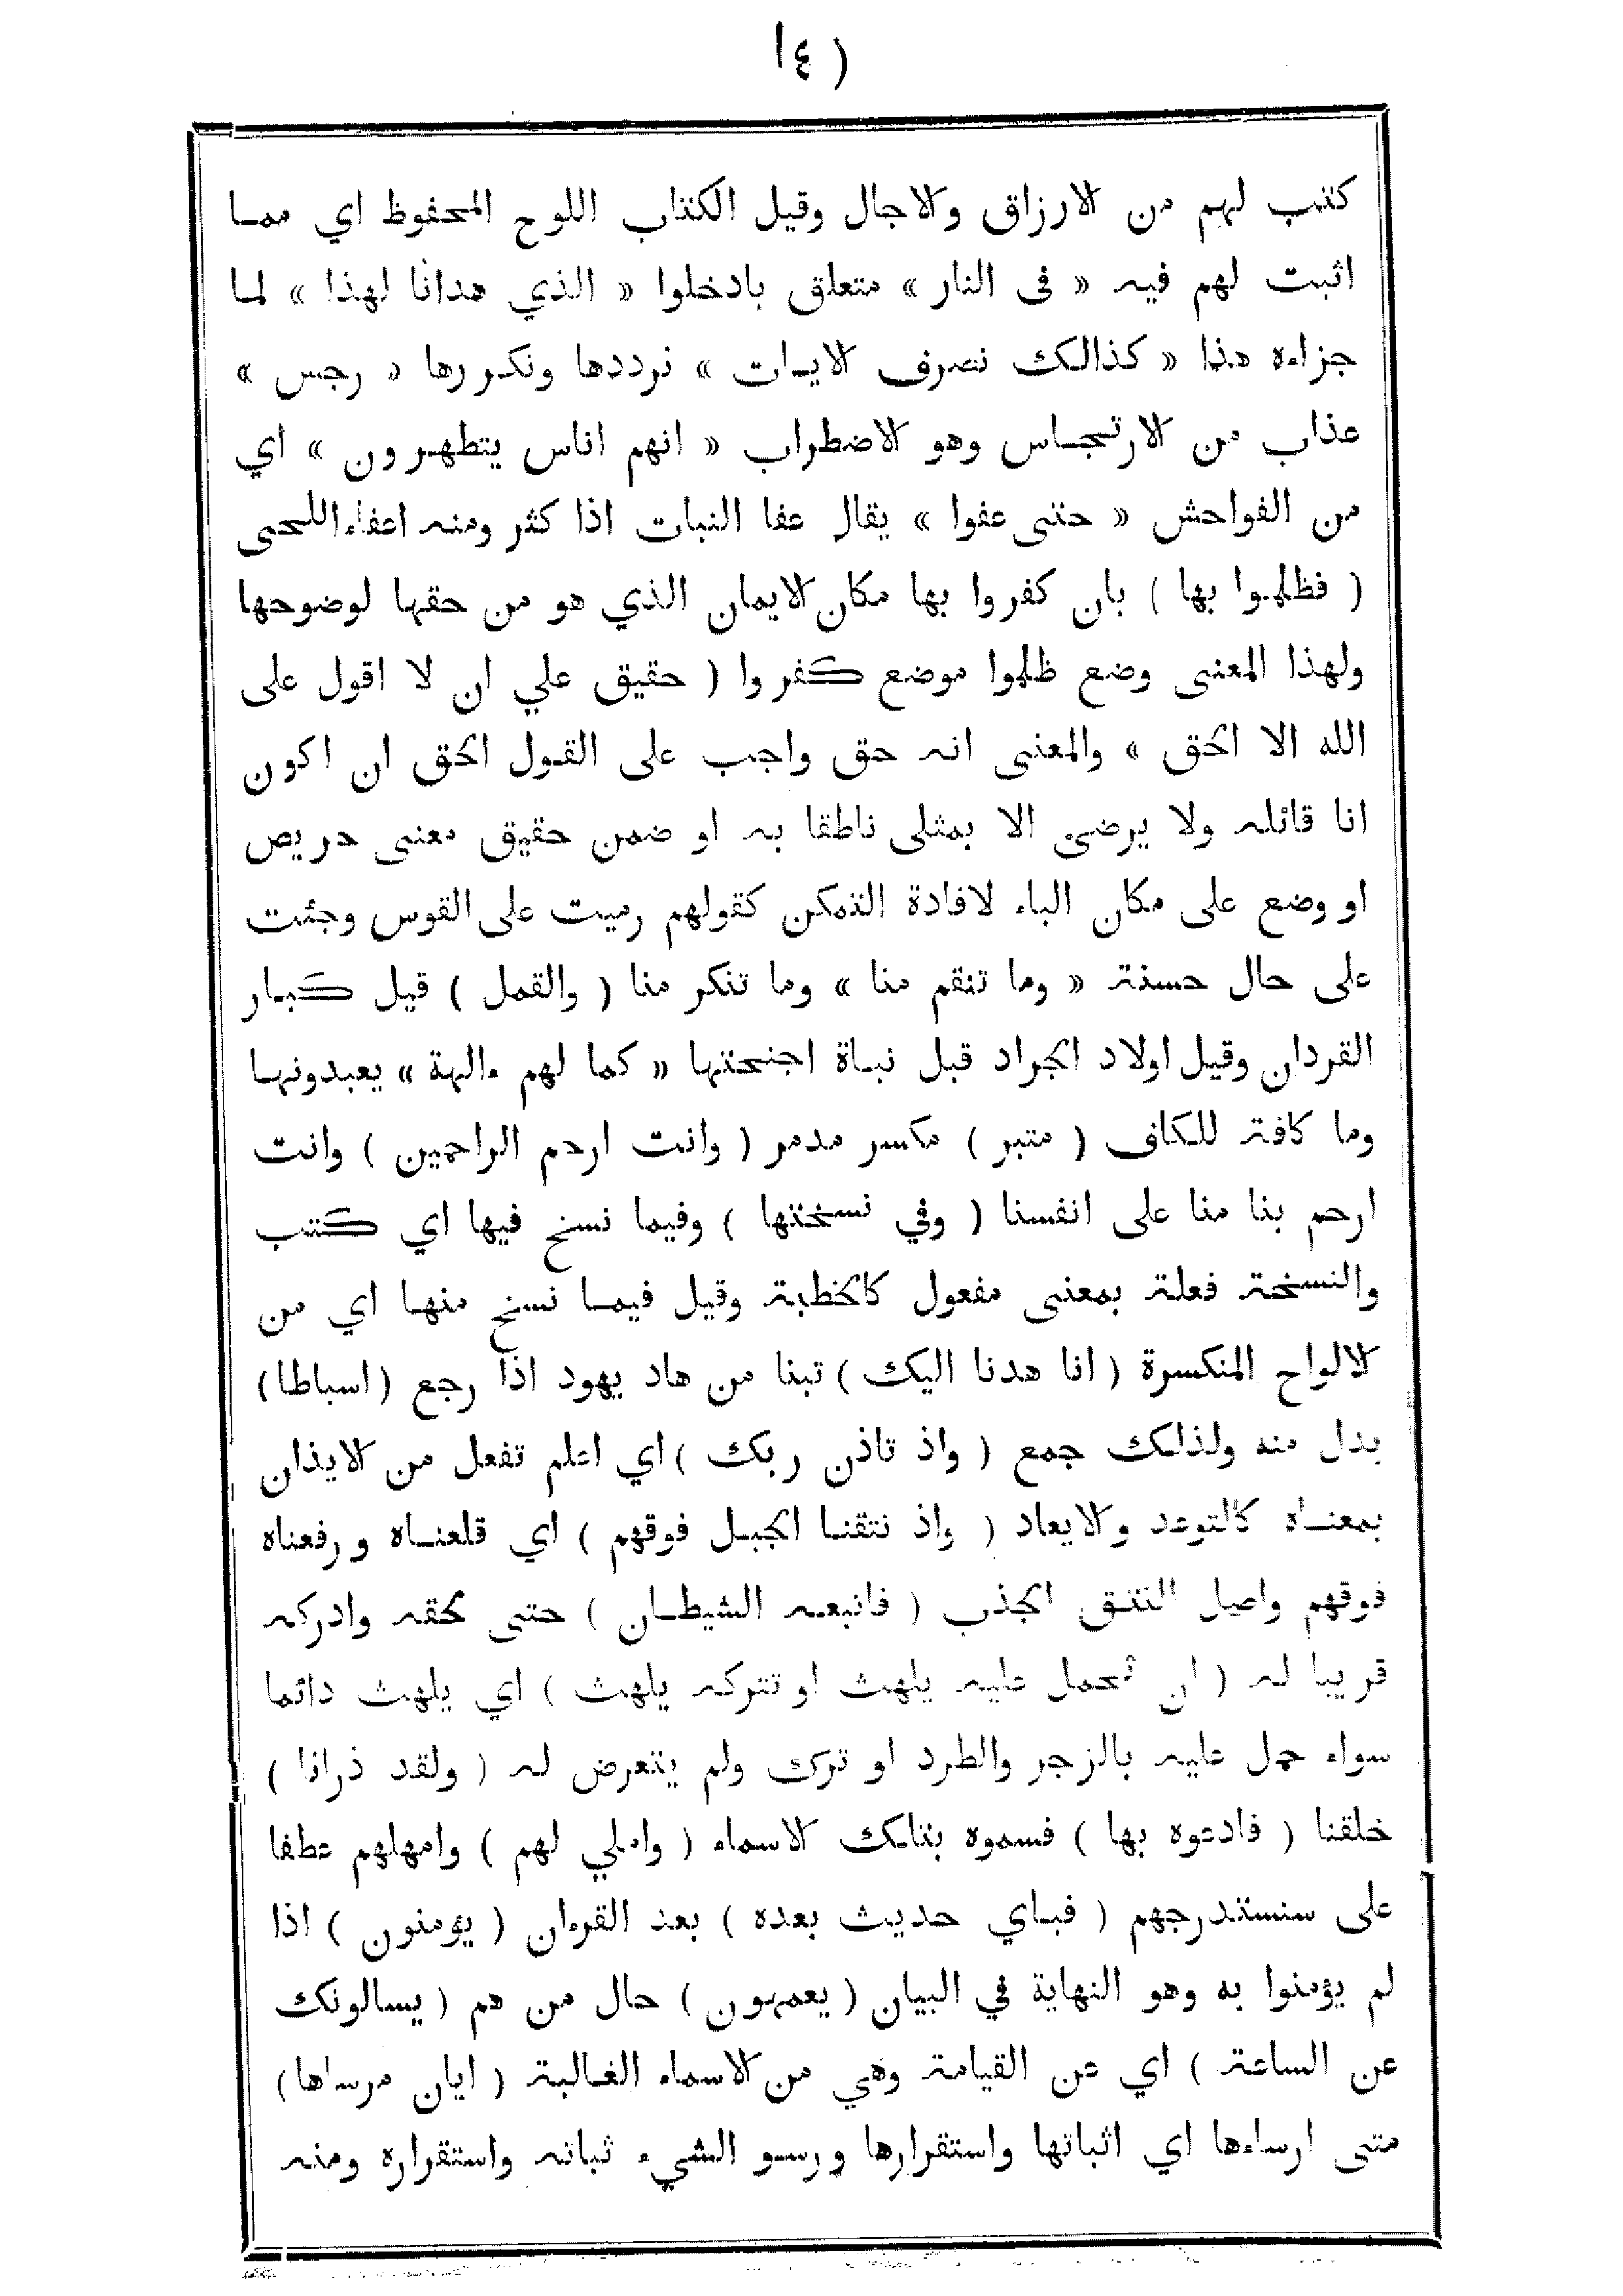 ( ٤١
كتب لهم من الارزاق والاجال وقيل الكتاب اللوح المحفوظ اي ممـا
اثبت لهم فيه « فى النار » متعلق بادخلوا « الذي هدانا لهذا » لما
جزاءه هذا « كذالـك نصرف الايـات » نرددها ونكررها « رجس »
عذاب من الارتجـاس وهو الاضطراب « انهم اناس يتطهـرون » اي
من الفواحش « حتى عفوا » يقال عفا النبات اذا كثر ومنه اعفاء اللحى
( فظلموا بها ) بان كفروا بها مكان الايمان الذي هو من حقها لوضوحها
ولهذا المعنى وضع ظلموا موضع كفروا ( حقيق علي ان لا اقول على
الله الا الحق » والمعنى انه حق واجب على القول الحق ان اكون
انا قائله ولا يرضى الا بمثلى ناطقا به او ضمن حقيق معنى حريص
او وضع على مكان الباء لافادة التمكن كقولهم رميت على القوس وجئت
على حال حسنة « وما تنقم منا » وما تنكر منا ( والقمل ) قيل كبـار
القردان وقيل اولاد الجراد قبل نبـاة اجنحتها « كما لهم ءالهة » يعبدونهـا
وما كافة للكاف ( متبر ) مكسر مدمر ( وانت ارحم الراحمين ) وانت
ارحم بنا منا على انفسنا ( وفي نسختها ) وفيما نسخ فيها اي كتب
والنسخة فعلة بمعنى مفعول كالخطبة وقيل فيمـا نسخ منهـا اي من
الالواح المنكسرة ( انا هدنا اليك ) تبنا من هاد يهود اذا رجع (اسباطا)
بدل منه ولذلـك جمع ( واذ تاذن ربك ) اي اعلم تفعل من الايذان
بمعنـاه كالتوعد والايعاد ( واذ نتقنـا الجبـل فوقهم ) اي قلعنـاه ورفعناه
فوقهم واصل النتـق الجذب ( فاتبعـه الشيطـان ) حتى لحقه وادركه
قريبا له ( ان تحمل عليه يلهث او تتركه يلهث ) اي يلهث دائما
سواء حمل عليه بالزجر والطرد او ترك ولم يتعرض له ( ولقد ذرانا )
خلقنا ( فادعوه بها ) فسموه بتلـك الاسماء ( واملي لهم ) وامهلهم عطفا
على سنستدرجهم ( فبـاي حديث بعده ) بعد القرءان ( يؤمنون ) اذا
لم يؤمنوا به وهو النهاية في البيان ( يعمهون ) حال من هم ( يسالونك
عن الساعة ) اي عن القيامة وهي من الاسماء الغـالبة ( ايان مرساها)
متى ارساءها اي اثباتها واستقرارها ورسـو الشيء ثباته واستقراره ومنه